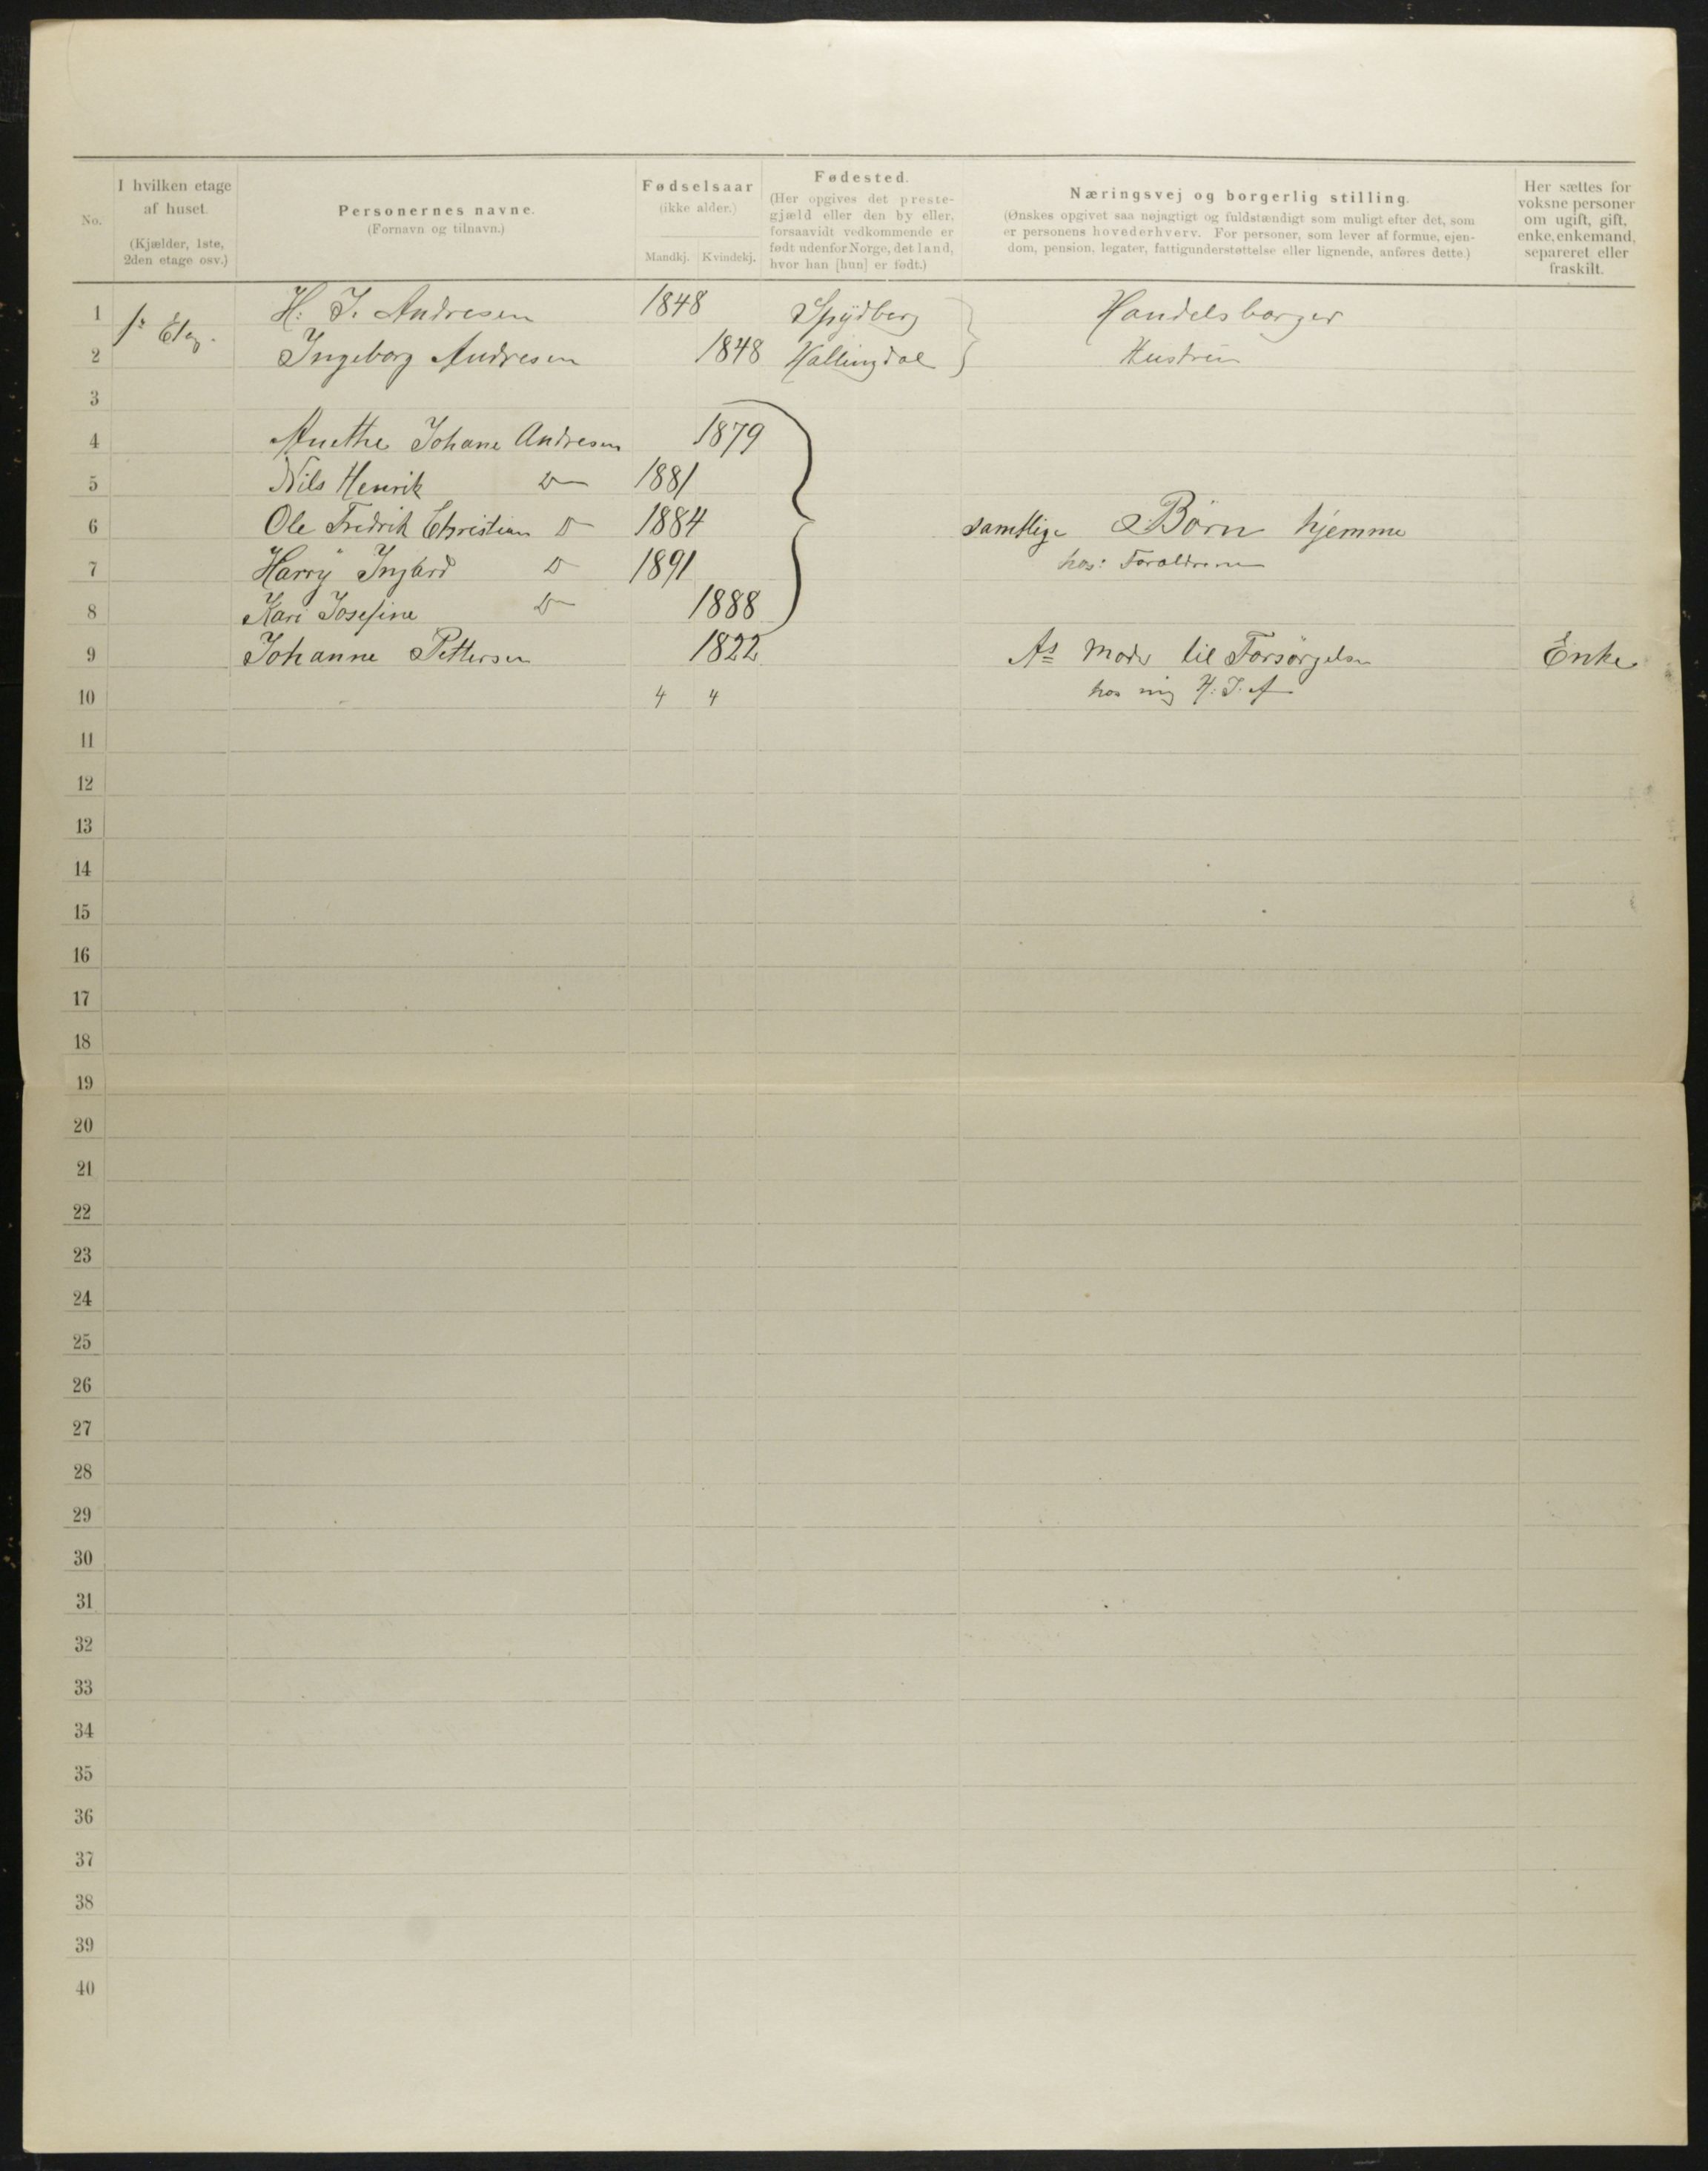 No.
I hvilken etage af huset.
(Kjælder, 1ste, 2den etage osv.)
Personernes navne.
(Fornavn og tilnavn.)
Fødselsaar
(ikke alder.)
Mandkj. Kvindekj.
Fødested.
(Her opgives det preste-
gjæld eller den by eller,
forsaavidt vedkommende er
født udenfor Norge, det land,
hvor han [hun] er født.)
Næringsvej og borgerlig stilling.
(Ønskes opgivet saa nøjagtigt og fuldstændigt som muligt efter det, som
er personens hovederhverv. For personer, som lever af formue, ejen-
dom, pension, legater, fattigunderstøttelse eller lignende, anføres dette.)
Her sættes for
voksne personer
om ugift, gift,
enke, enkemand,
separeret eller
fraskilt.
1 1ste Etag. H. J. Andresen 1848 Spydberg Handelsborger
2 Ingeborg Andresen 1848 Hallingdal Hustru
3
4 Anethe Johane Andresen 1879
5 Nils Henrik Do 1881
6 Ole Fredrik Christian Do 1884 samtlige Børn hjemme
7 Harry Ingvard Do 1891 hos: Forældrene
8 Kari Josefine Do 1888
9 Johanne Pettersen 1822 As Moder til Forsørgelse Enke
10 4 4 hos mig H. J. A
11
12
13
14
15
16
17
18
19
20
21
22
23
24
25
26
27
28
29
30
31
32
33
34
35
36
37
38
39
40